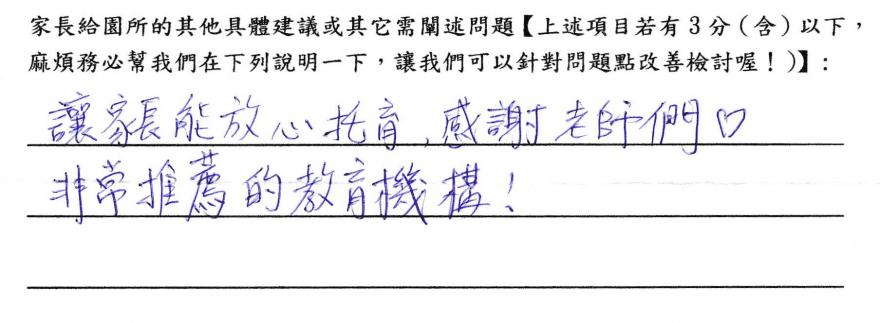 家長給園所的其他具體建議或其它需闡述問題【上述項目若有3分（含）以下，
麻煩務必幫我們在下列說明一下，讓我們可以針對問題點改善檢討喔！)】：
讓家長能放心托育,感謝老師們♡
非常推薦的教育機構！